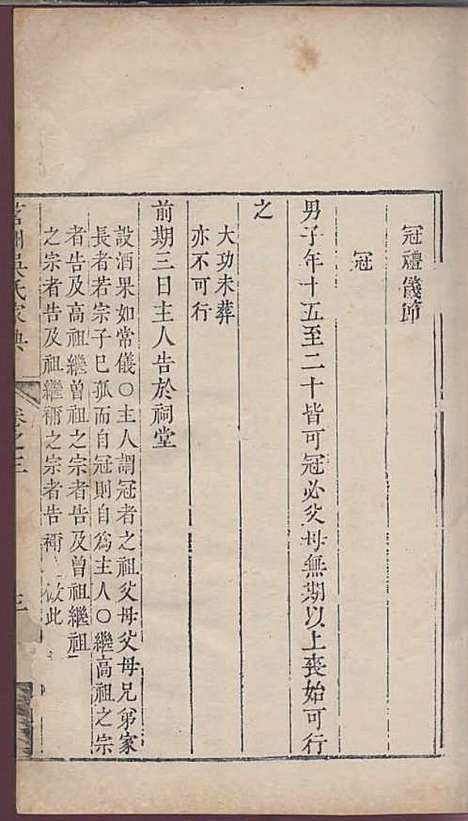 冠禮儀節
冠
男子年十五至二十皆可冠必父母無期以上喪始可行
之
大功未葬
亦不可行
前期三日主人告於祠堂
設酒果如常儀〇主人謂冠者之祖父母父母兄弟家
長者若宗子已孤而自冠則自為主人〇繼高祖之宗
者告及高祖繼曾祖之宗者告及曾祖繼祖
之宗者告及祖繼禰之宗者告禰 倣此
茗洲吳氏家典 卷之三 三